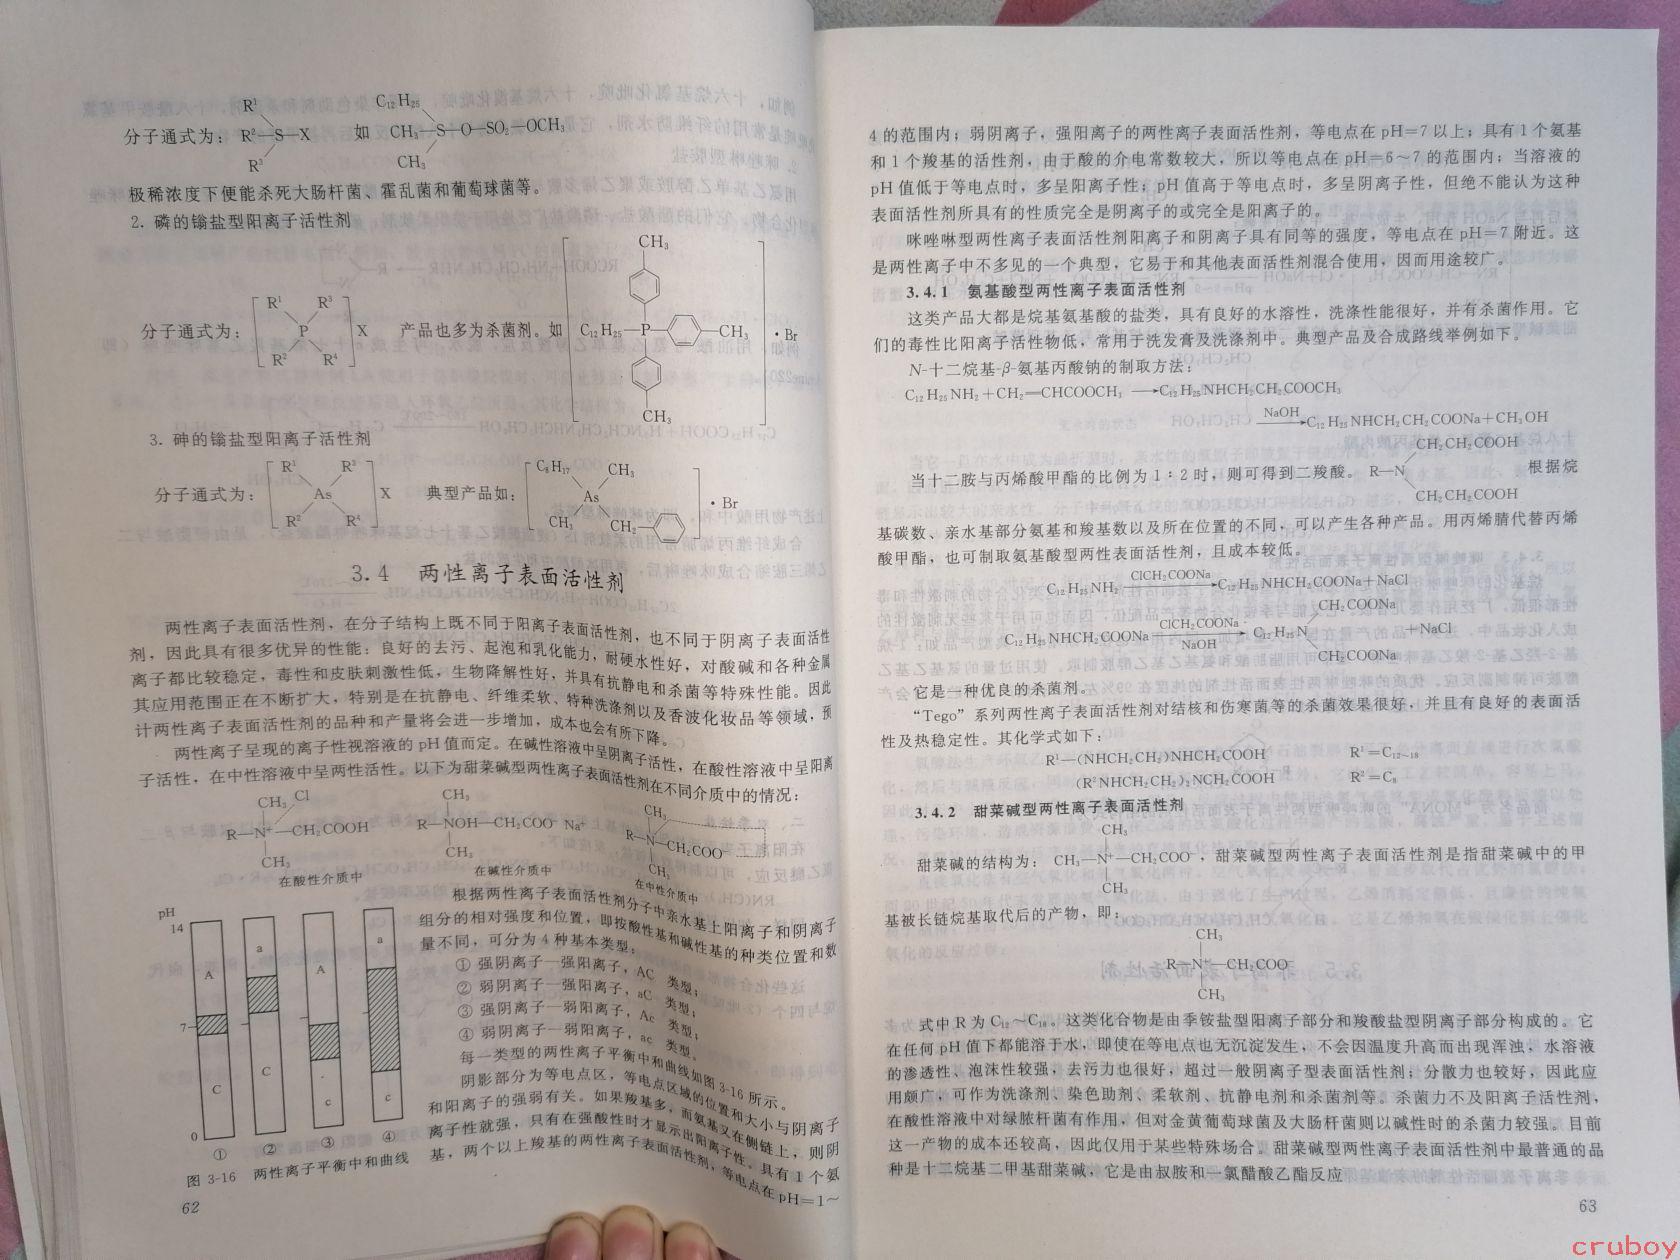 R¹ C₁₂H₂₅
分子通式为：R²—S—X 如 CH₃—S—O—SO₂—OCH₃
R³ CH₃
极稀浓度下便能杀死大肠杆菌、霍乱菌和葡萄球菌等。
2. 磷的𬭩盐型阳离子活性剂
CH₃
R¹ R³
分子通式为： P X 产品也多为杀菌剂。如 C₁₂H₂₅—P— —CH₃ ·Br
R² R⁴
CH₃
3. 砷的𬭩盐型阳离子活性剂
R¹ R³ C₈H₁₇ CH₃
分子通式为： As X 典型产品如： As ·Br
R² R⁴ CH₃ CH₂—
3.4 两性离子表面活性剂
两性离子表面活性剂，在分子结构上既不同于阳离子表面活性剂，也不同于阴离子表面活性
剂，因此具有很多优异的性能：良好的去污、起泡和乳化能力，耐硬水性好，对酸碱和各种金属
离子都比较稳定，毒性和皮肤刺激性低，生物降解性好，并具有抗静电和杀菌等特殊性能。因此
其应用范围正在不断扩大，特别是在抗静电、纤维柔软、特种洗涤剂以及香波化妆品等领域，预
计两性离子表面活性剂的品种和产量将会进一步增加，成本也会有所下降。
两性离子呈现的离子性视溶液的 pH 值而定。在碱性溶液中呈阴离子活性，在酸性溶液中呈阳离
子活性，在中性溶液中呈两性活性。以下为甜菜碱型两性离子表面活性剂在不同介质中的情况：
CH₃ Cl CH₃ CH₃
R—N⁺—CH₂COOH R—NOH—CH₂COO⁻ Na⁺ R—N—CH₂COO⁻
CH₃ CH₃ CH₃
在酸性介质中 在碱性介质中 在中性介质中
pH
14
7
0
A C
a C
A c
a c
① ② ③ ④
图 3-16 两性离子平衡中和曲线
根据两性离子表面活性剂分子中亲水基上阳离子和阴离子
组分的相对强度和位置，即按酸性基和碱性基的种类位置和数
量不同，可分为 4 种基本类型：
① 强阴离子—强阳离子，AC 类型；
② 弱阴离子—强阳离子，aC 类型；
③ 强阴离子—弱阳离子，Ac 类型；
④ 弱阴离子—弱阳离子，ac 类型。
每一类型的两性离子平衡中和曲线如图 3-16 所示。
阴影部分为等电点区，等电点区域的位置和大小与阴离子
和阳离子的强弱有关。如果羧基多，而氨基又在侧链上，则阴
离子性就强，只有在强酸性时才显示出阳离子性。具有 1 个氨
基，两个以上羧基的两性离子表面活性剂，等电点在 pH=1～
62
4 的范围内；弱阴离子，强阳离子的两性离子表面活性剂，等电点在 pH=7 以上；具有 1 个氨基
和 1 个羧基的活性剂，由于酸的介电常数较大，所以等电点在 pH=6～7 的范围内；当溶液的
pH 值低于等电点时，多呈阳离子性；pH 值高于等电点时，多呈阴离子性，但绝不能认为这种
表面活性剂所具有的性质完全是阴离子的或完全是阳离子的。
咪唑啉型两性离子表面活性剂阳离子和阴离子具有同等的强度，等电点在 pH=7 附近。这
是两性离子中不多见的一个典型，它易于和其他表面活性剂混合使用，因而用途较广。
3.4.1 氨基酸型两性离子表面活性剂
这类产品大都是烷基氨基酸的盐类，具有良好的水溶性，洗涤性能很好，并有杀菌作用。它
们的毒性比阳离子活性物低，常用于洗发膏及洗涤剂中。典型产品及合成路线举例如下。
N-十二烷基-β-氨基丙酸钠的制取方法：
C₁₂H₂₅NH₂+CH₂=CHCOOCH₃ ⟶C₁₂H₂₅NHCH₂CH₂COOCH₃
NaOH
⟶C₁₂H₂₅NHCH₂CH₂COONa+CH₃OH
CH₂CH₂COOH
当十二胺与丙烯酸甲酯的比例为 1∶2 时，则可得到二羧酸。R—N 根据烷
CH₂CH₂COOH
基碳数、亲水基部分氨基和羧基数以及所在位置的不同，可以产生各种产品。用丙烯腈代替丙烯
酸甲酯，也可制取氨基酸型两性表面活性剂，且成本较低。
ClCH₂COONa
C₁₂H₂₅NH₂ ⟶C₁₂H₂₅NHCH₂COONa+NaCl
CH₂COONa
ClCH₂COONa
C₁₂H₂₅NHCH₂COONa ⟶ C₁₂H₂₅N +NaCl
NaOH
CH₂COONa
它是一种优良的杀菌剂。
“Tego”系列两性离子表面活性剂对结核和伤寒菌等的杀菌效果很好，并且有良好的表面活
性及热稳定性。其化学式如下：
R¹—(NHCH₂CH₂)NHCH₂COOH R¹=C₁₂₋₁₈
(R²NHCH₂CH₂)₂NCH₂COOH R²=C₈
3.4.2 甜菜碱型两性离子表面活性剂
CH₃
甜菜碱的结构为： CH₃—N⁺—CH₂COO⁻，甜菜碱型两性离子表面活性剂是指甜菜碱中的甲
CH₃
基被长链烷基取代后的产物，即：
CH₃
R—N⁺—CH₂COO⁻
CH₃
式中 R 为 C₁₂～C₁₈。这类化合物是由季铵盐型阳离子部分和羧酸盐型阴离子部分构成的。它
在任何 pH 值下都能溶于水，即使在等电点也无沉淀发生，不会因温度升高而出现浑浊，水溶液
的渗透性、泡沫性较强，去污力也很好，超过一般阴离子型表面活性剂；分散力也较好，因此应
用颇广，可作为洗涤剂、染色助剂、柔软剂、抗静电剂和杀菌剂等。杀菌力不及阳离子活性剂，
在酸性溶液中对绿脓杆菌有作用，但对金黄葡萄球菌及大肠杆菌则以碱性时的杀菌力较强。目前
这一产物的成本还较高，因此仅用于某些特殊场合。甜菜碱型两性离子表面活性剂中最普通的品
种是十二烷基二甲基甜菜碱，它是由叔胺和一氯醋酸乙酯反应
63
cruboy